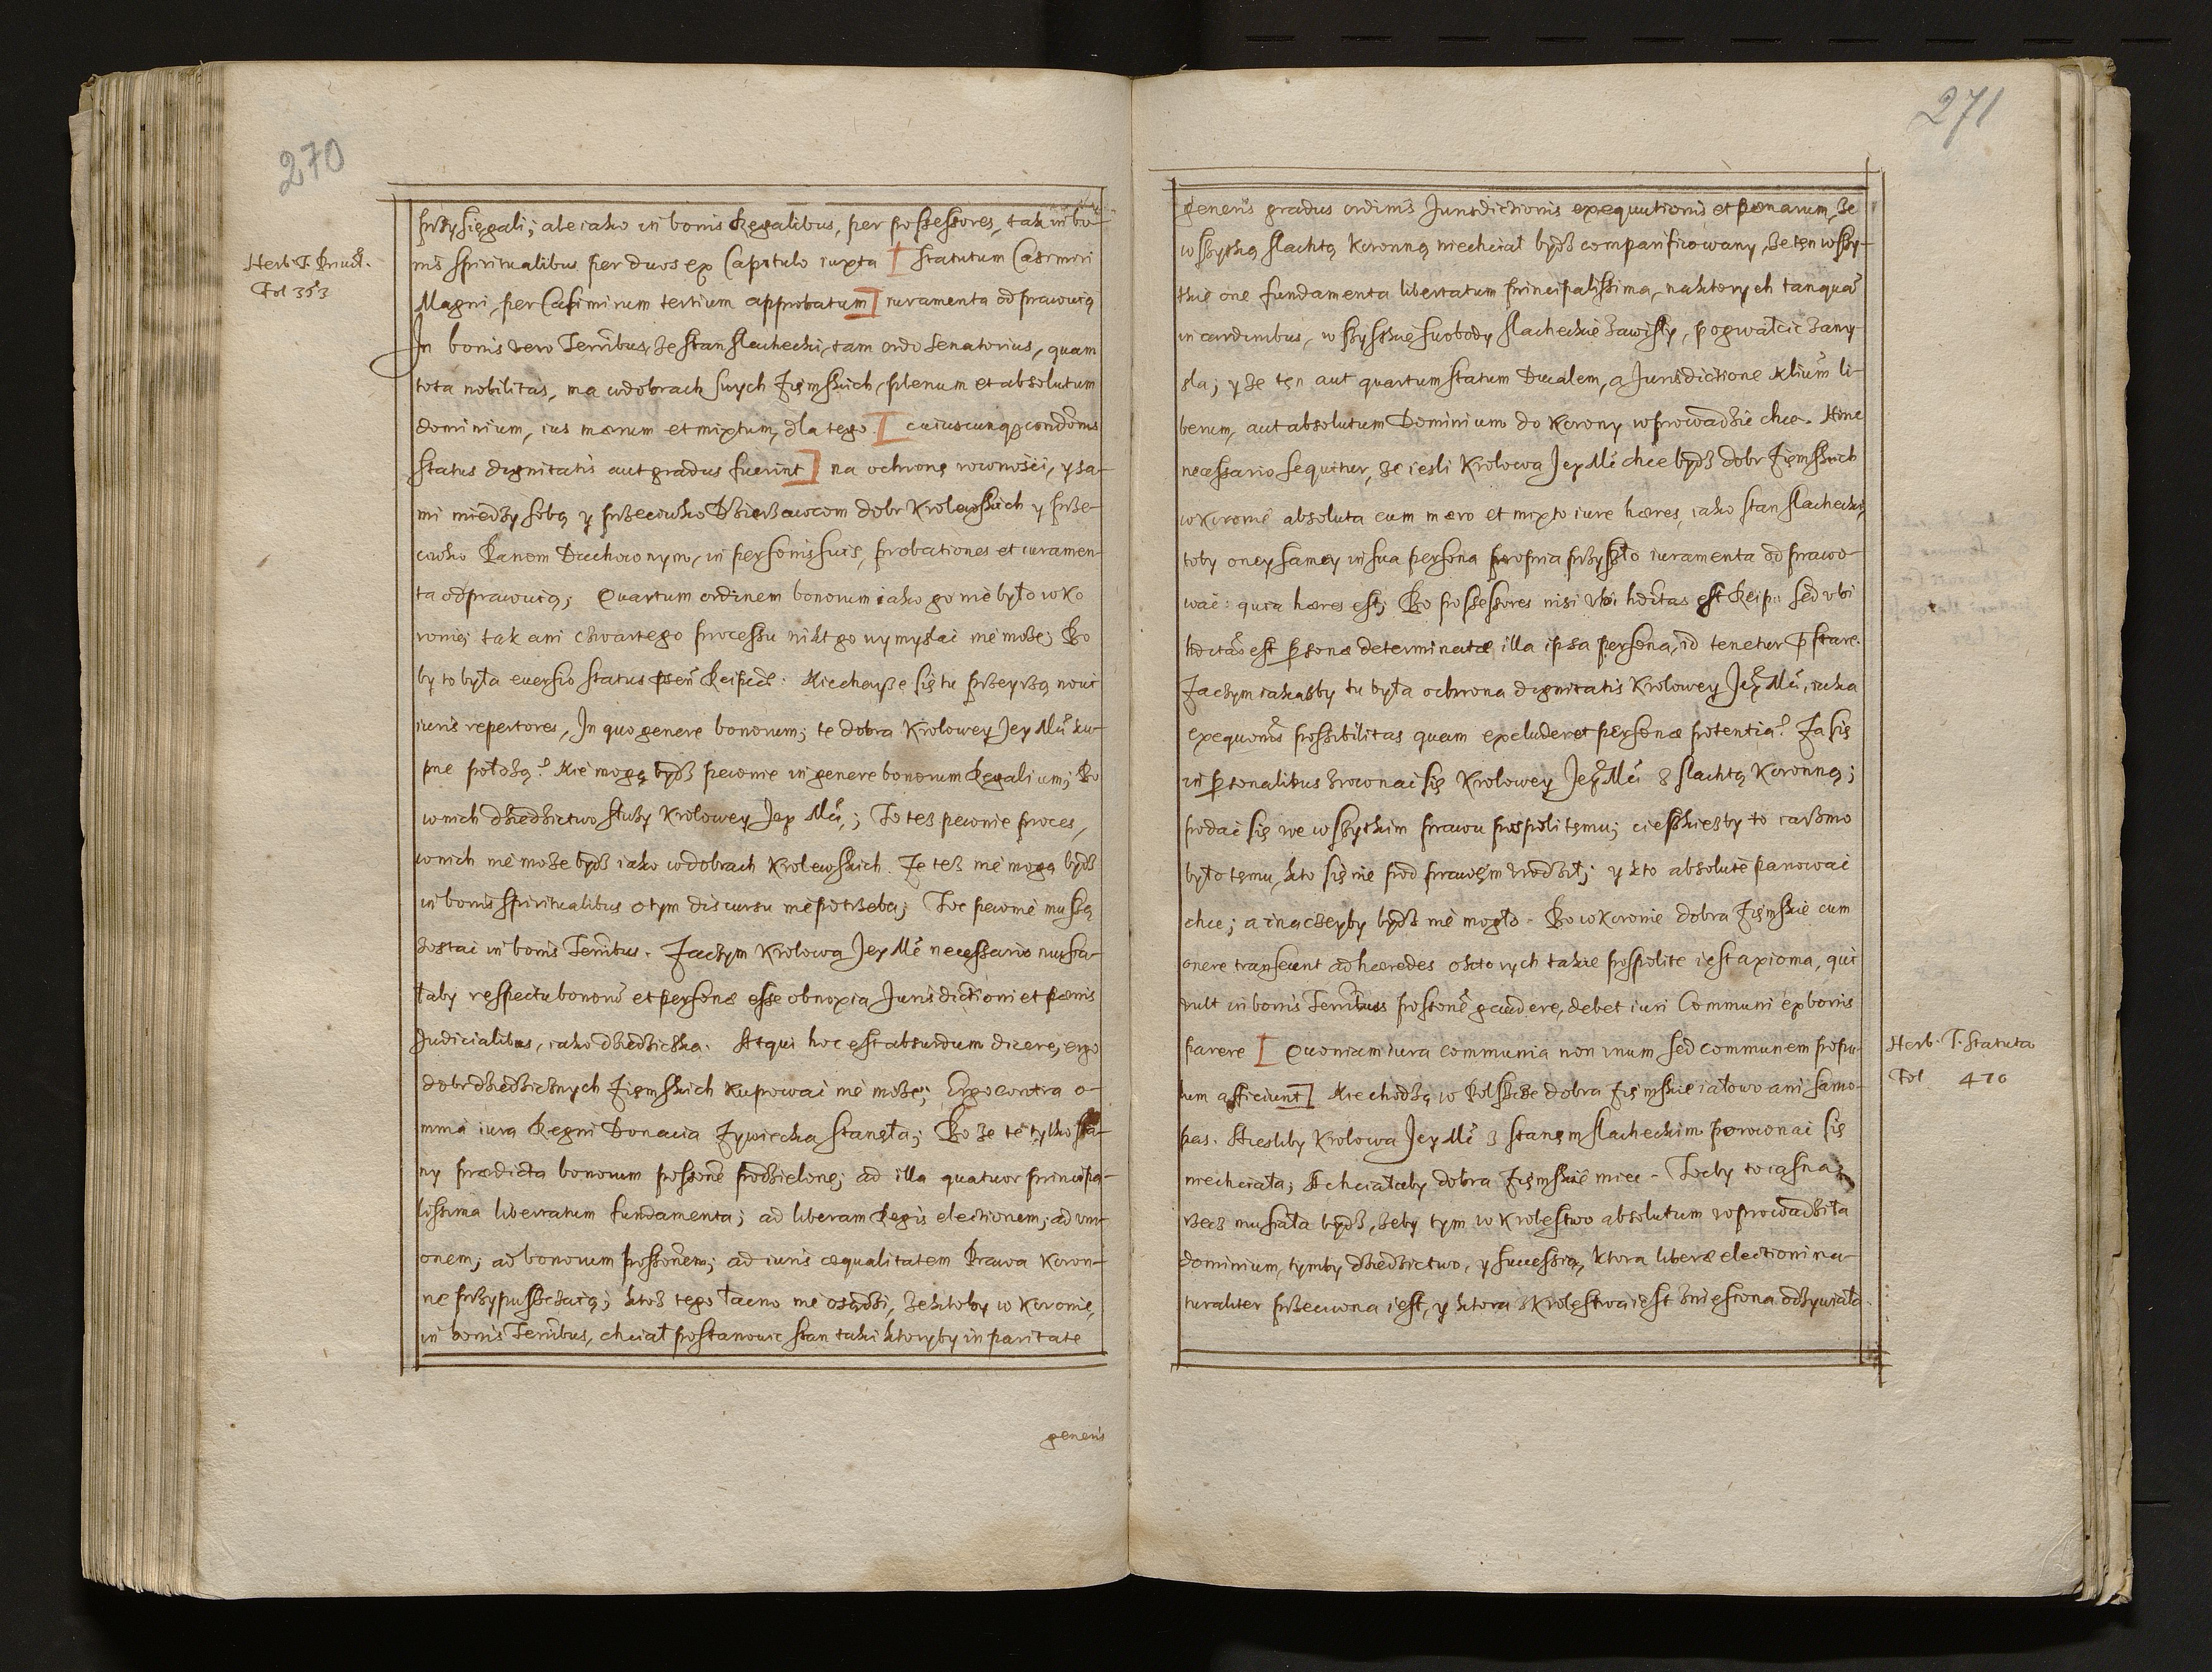 270
przysięgali; ale iako in bonis Regalibus, per possessores, tak in bo-
nis spiritualibus per duos ex Capitulo iuxta [ statutum Casimiri
Herb. T.
Fol 353
Magni, per Casimirum tertium approbatum ] iuramenta odprawuią
In bonis vero Terribus, że stan slachecki, tam ordo Senatorius, quam
tota nobilitas, ma w dobrach swych Ziemskich, plenum et absolutum
dominium, ius merum et mixtum, dla tego. [ cuiuscunq condonis
status dignitatis aut gradus fuerint ] na ochronę rowności, y sa-
mi miedzy sobą y przeciwko Dzierżawcom dobr Krolewskich y prze-
ciwko Panom Duchownym, in personis suis, probationes et iuramen-
ta odprawuią; Quartum ordinem bonorum iako go nie było w Ko
ronie; tak ani czwartego processu nikt go wymyslai nie może; Bo
by to była euersio status Reipcae. Niechayże się tu przeyrzą noui
iuris repertores, In quo genere bonorum; te dobra Krolowey Jey Mci ku-
pne połozą? Nie mogą bydz pewnie in genere bonorum Regalium; Bo
w nich dziedzictwo służy Krolowey Jey Mci; To tez pewnie proces,
w nich nie może bydz iako w dobrach Krolewskich. Ze tez nie mogą bydz
in bonis spiritualibus o tym discursu nie potrzeba; Toc pewnie muszą
zostai in bonis Terribus. Zaczym Krolowa Jey Mc necessario musia-
łaby respectu bonorum et personae esse obnoxia Jurisdictioni et poenis
Judicialibus, iako dziedziczka. Atqui hoc est absurdum dicere, ergo
dobr dziedzicznych Ziemskich kupowai nie może; Ergo contra o-
mnia iura Regni Donacia Zywiecka stanęła; Bo że te tylko sta-
ny praedicta bonorum possone podzielone; ad illa quatuor principa-
lissima libertatum fundamenta; ad liberam Regis electionem; ad vni-
onem; ad bonorum possonem; ad iuris aequalitatem Prawa Koron-
ne przypuszczaią; ktoz tego łacno nie osądzi, że ktoby w Koronie,
in bonis Terribus, chciał postanowic stan taki ktoryby in paritate
generis
271
generis gradus ordinis Jurisdictionis exequutionis et poenarum, że
wszytką slachtą Koronną niechciał bydz comparificowany, że ten wszy-
tkie one fundamenta libertatum principalissima, na ktorych tanqua
in cardinibus, wszystkie swobody slacheckie zawisły, pogwałcic zamy-
sla; y że ten aut quartum statum Ducalem, a Jurisdictione li-
berum, aut absolutum Dominium do Korony wprowadzie chce. Hinc
necessario sequitur, że iesli Krolowa Jey Mc chce bydz dobr Ziemskich
w Koronie absoluta cum mero et mixto iure haeres, iako stan slachecki,
toby oney samey in sua persona propria przyszło iuramenta odprawo-
wac: quia haeres est; Bo possessores nisi vbi hditas est Reip: sed vbi
hditas est psonae determinatae illa ipsa persona, id tenetur pstare.
Zaczym iakażby tu była ochrona dignitatis Krolowey Jey Mci, iaka
exequonis possibilitas quam excluderet personae potentia? Za się
in psonalibus zrownai się Krolowey Jey Mci z slachtą Koronną;
podai się we wszytkim prawu pospolitemu; cieszkiezby to iarzmo
było temu, kto się nie pod prawem vrodził; y kto absolute panowai
chce; a inaczeyby bydz nie mogło. Bo w Koronie dobra Ziemskie cum
onere transeunt ad haeredes o ktorych takie pospolite iest axioma, qui
vult in bonis Terribus possone gaudere, debet iuri Communi ex bonis
parere [ Quoniam iura communia non vnum sed communem popu-
lum afficiunt ] Nie chodzą w Polszcze dobra Ziemskie iałowo ani samo-
Herb. T. Statuta
Fol 470
pas. A iesliby Krolowa Jey Mc z stanem slacheckim porownai się
niechciała; A chciałaby dobra Ziemskie miec. Tocby to iasna
rzecz musiała bydz, żeby tym w Krolestwo absolutum wprowadziła
dominium, tymby dziedzictwo, y successią, ktora liberae electioni na-
turaliter przeciwna iest, y ktora z Krolestwa iest zniesiona odżywiała.